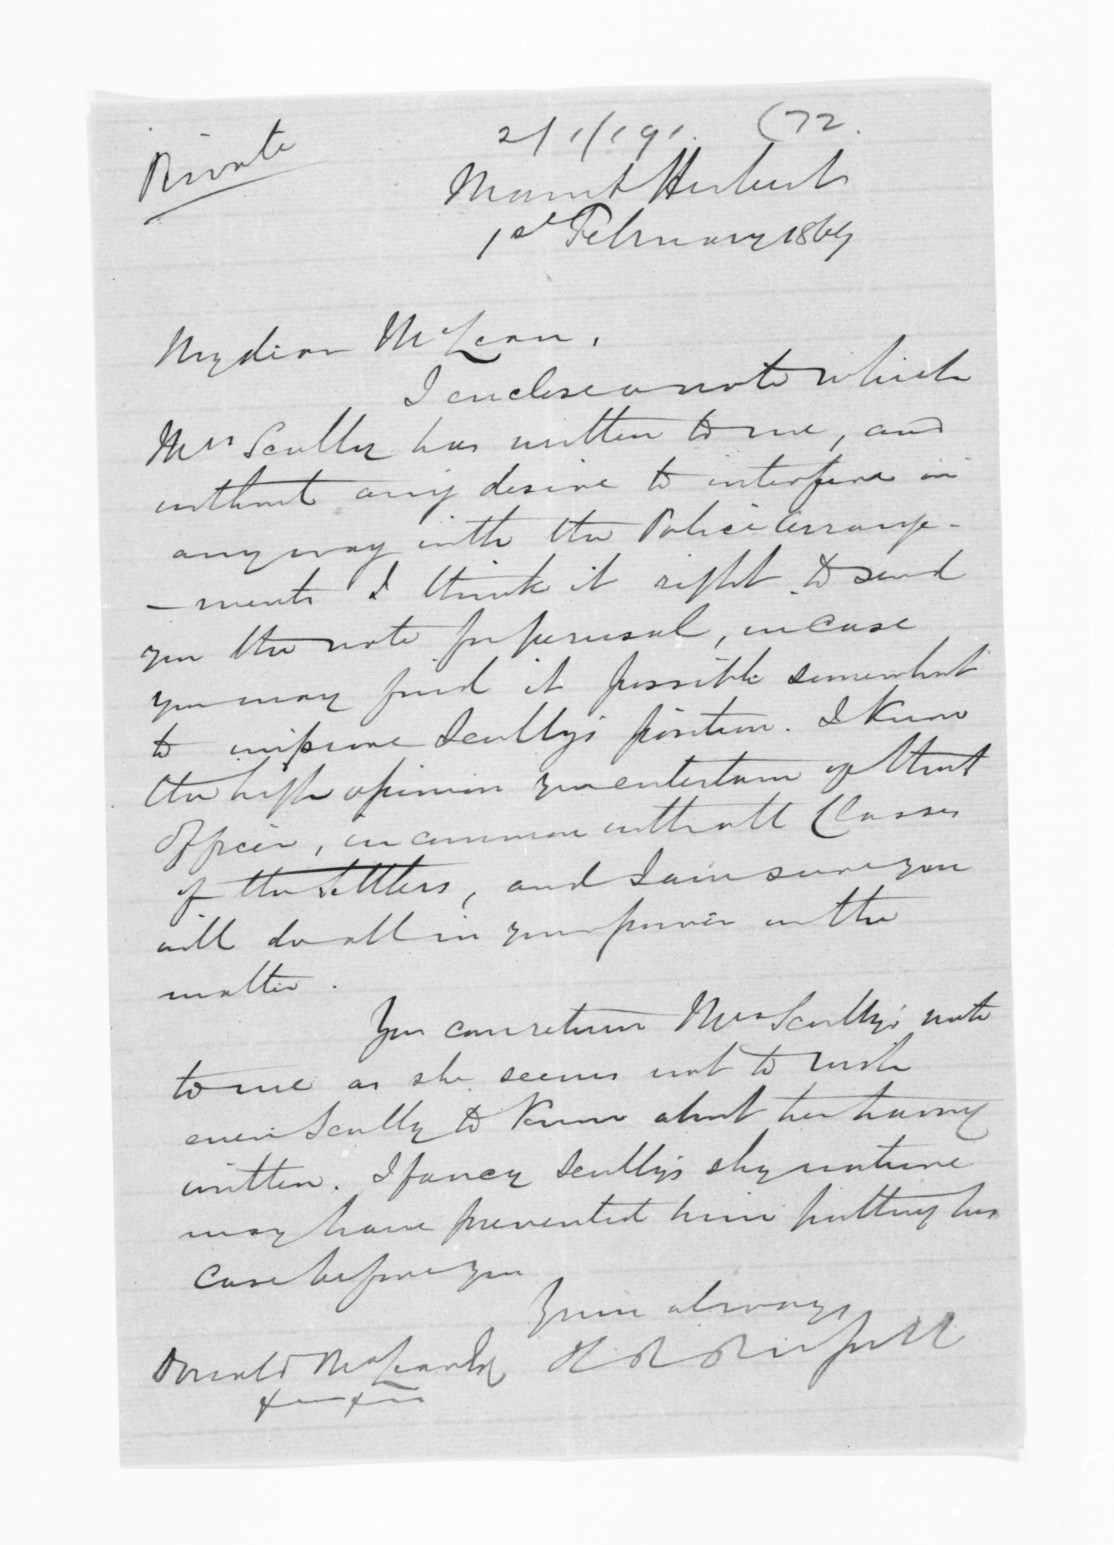 Private
2/1/191. (72.
Mount Herbert
1st February 1869
My dear McLean,
I enclose a note which
Mrs Scully has written to me, and
without any desire to interfere in
any way with the Police Arrange-
-ments I think it right to send
you the note for perusal, in case
you may find it possible somewhat
to improve Scully's position. I know
the high opinion you entertain of that
Officer, in common with all Classes
of the Settlers, and I am sure you
will do all in your power in the
matter.
You can return Mrs Scully's note
to me as she seems not to wish
even Scully to know about her having
written. I fancy Scully's shy nature
may have prevented him putting his
case before you
Yours always
H R Russell
Donald McLean Esq